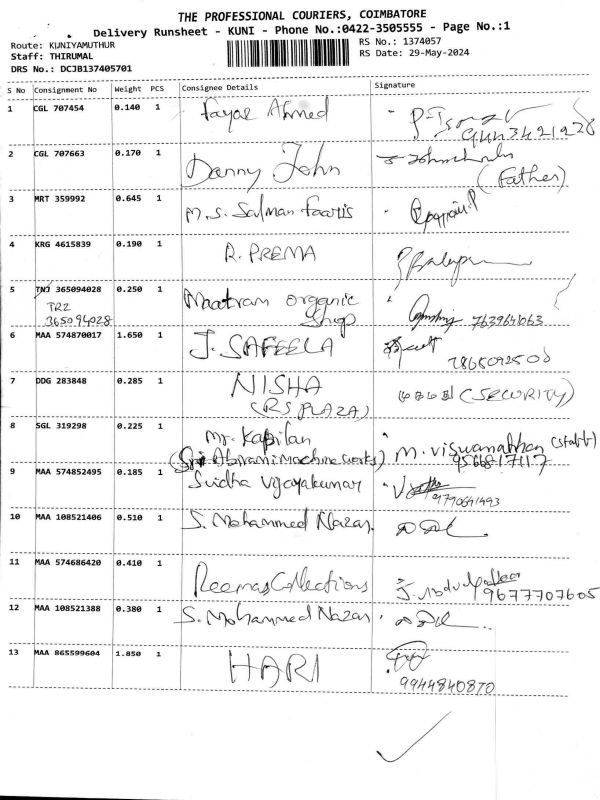 THE PROFESSIONAL COURIERS, COIMBATORE
Delivery Runsheet - KUNI - Phone No.:0422-3505555 - Page No.:1
Route: KUNIYAMUTHUR
RS No.: 1374057
Staff: THIRUMAL
RS Date: 29-May-2024
DRS No.: DCJB137405701
S No Consignment No Weight PCS Consignee Details Signature
1 CGL 707454 0.140 1 Fayaz Ahmed
9443421228
2 CGL 707663 0.170 1 Danny John
(Father)
3 MRT 359992 0.645 1 M.S. Salman Faaris
4 KRG 4615839 0.190 1 R. PREMA
5 TNJ 365094028 0.250 1 Maatram organic
TRZ shop
365094028 7639641063
6 MAA 574870017 1.650 1 J. SAFEELA
7 DDG 283848 0.285 1 NISHA (SECURITY)
(RS PLAZA)
8 SGL 319298 0.225 1 Mr. Kapilan
(Sri Abirami Machine works) M. Viswanathan (staff)
9 MAA 574852495 0.185 1 Sudha Vijayakumar
9790641493
10 MAA 108521406 0.510 1 S. Mohammed Nazar.
11 MAA 574686420 0.410 1 Reemas Collections J. Abdul
9677707605
12 MAA 108521388 0.380 1 S. Mohammed Nazar.
13 MAA 865599604 1.850 1 HARI
9944840870